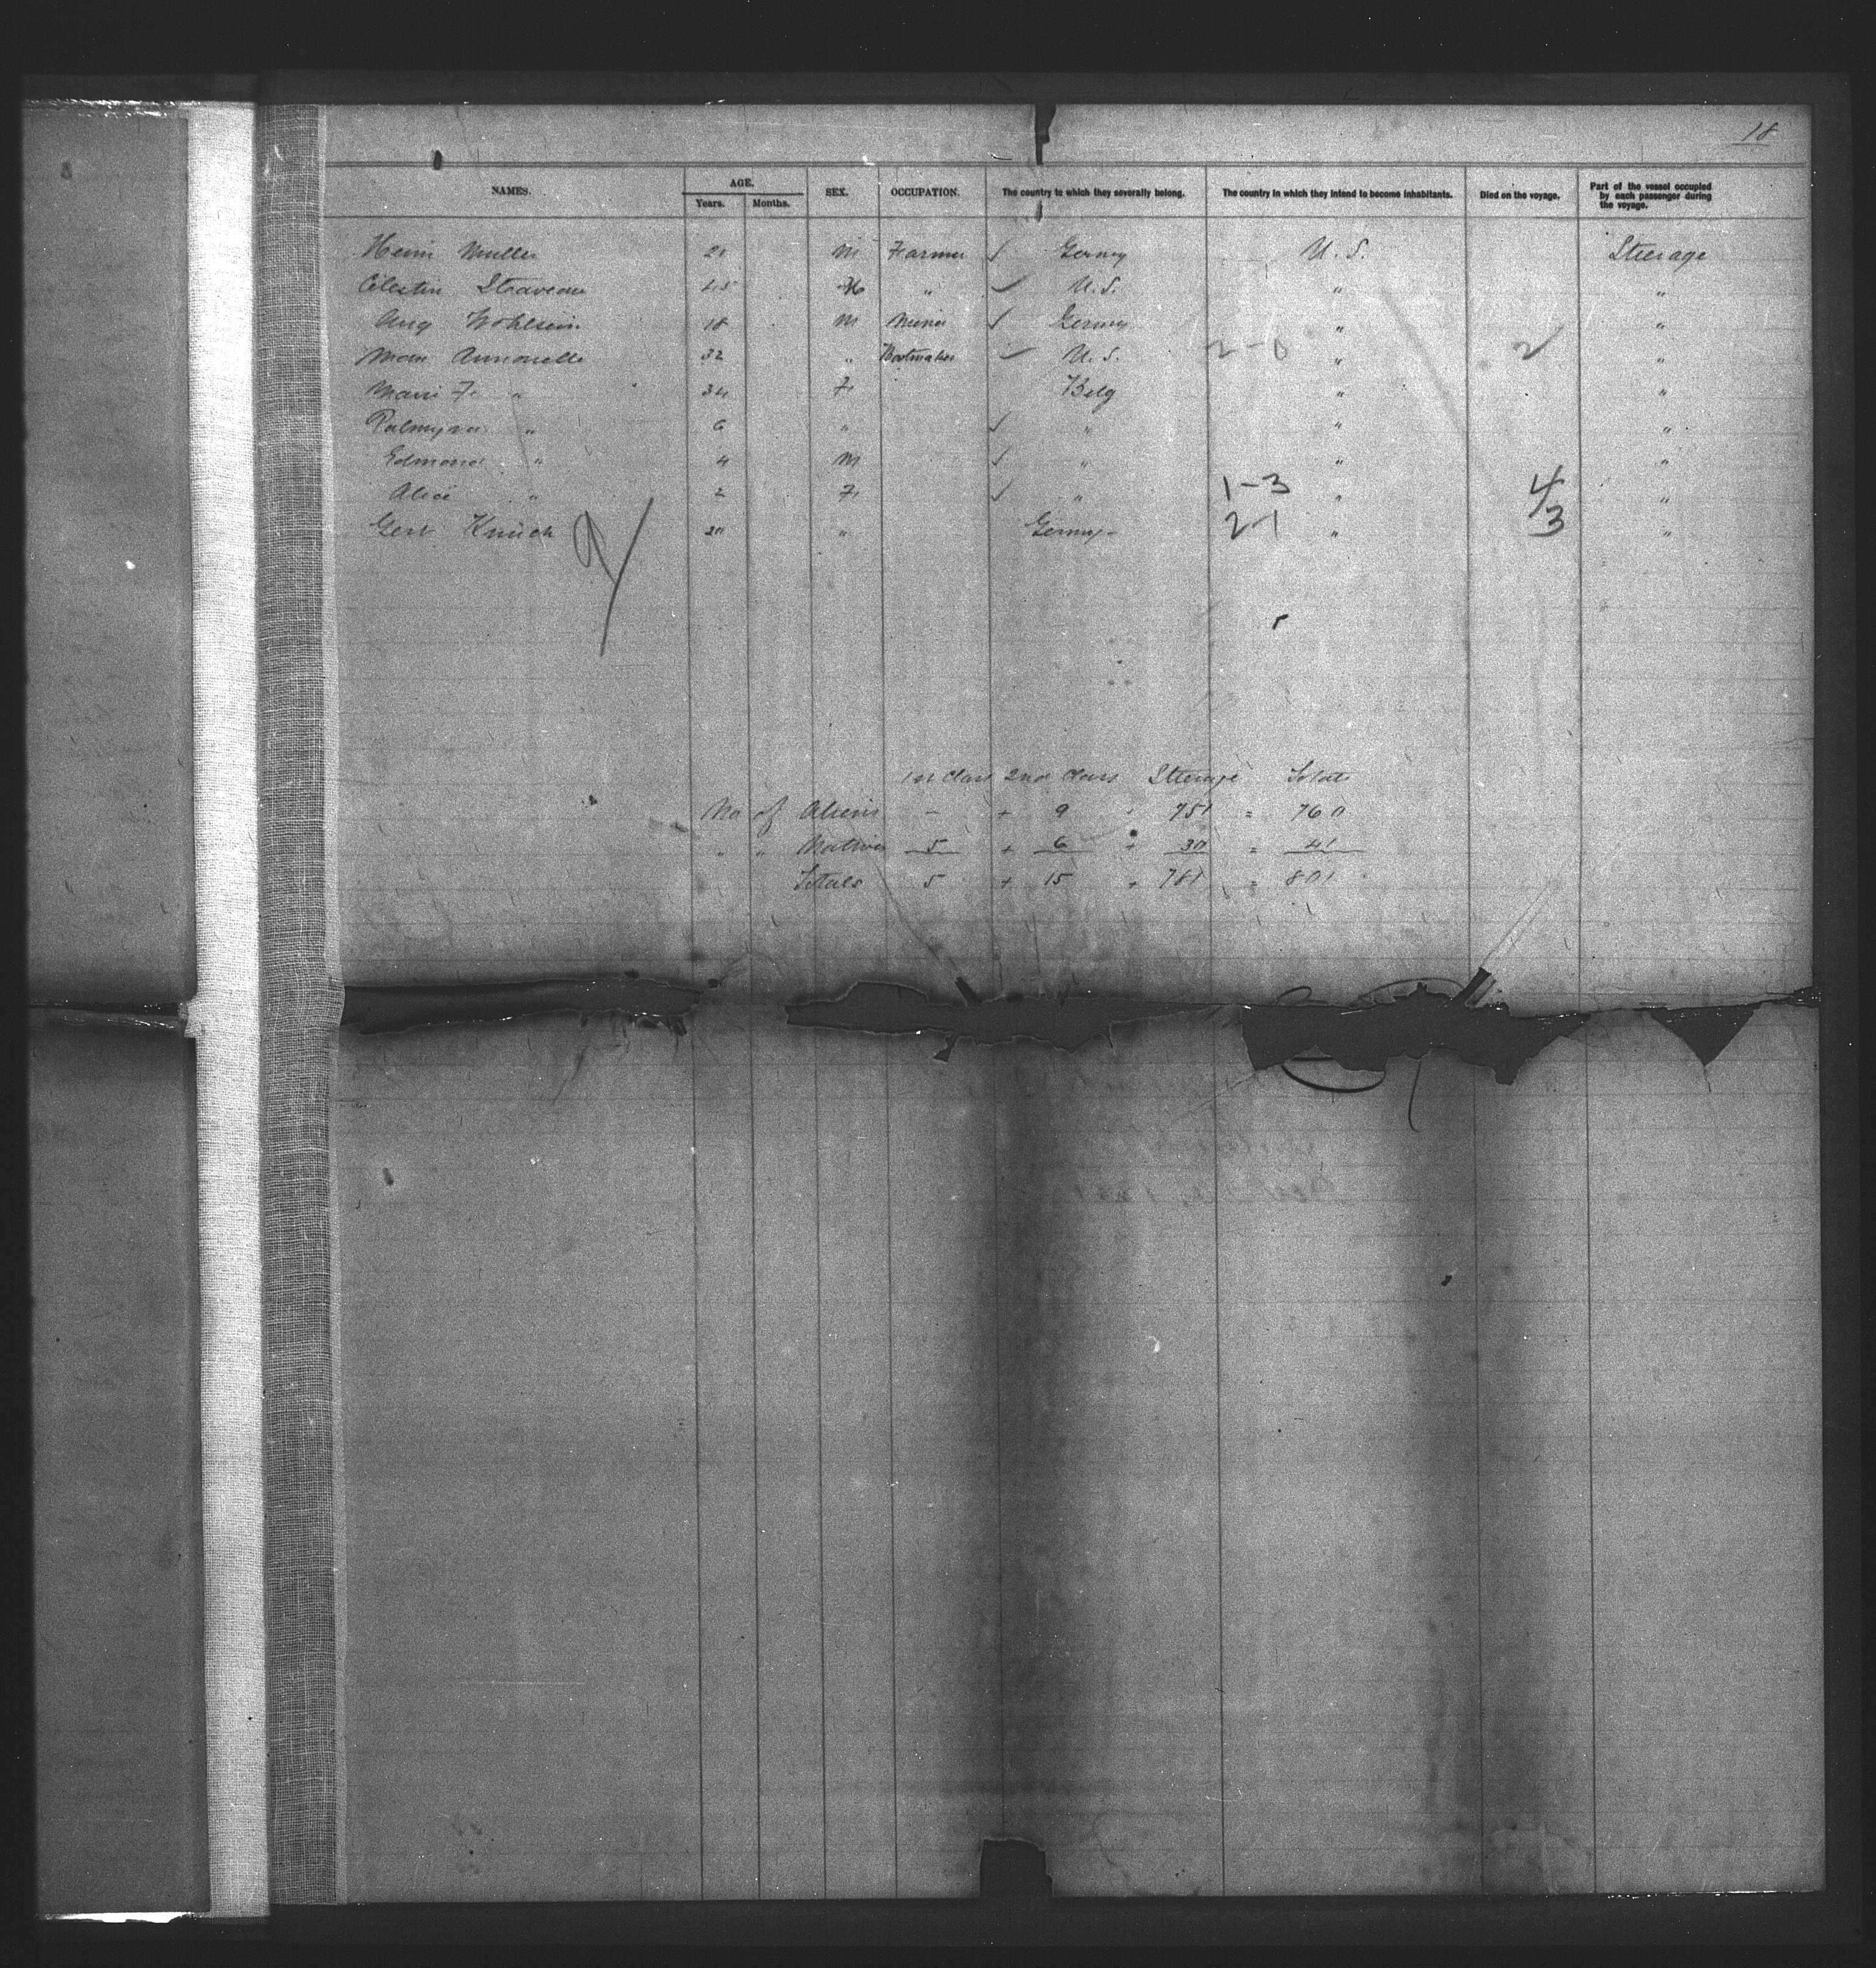 18
NAMES. AGE. Years. Months. SEX. OCCUPATION. The country to which they severally belong. The country in which they intend to become inhabitants. Died on the voyage. Part of the vessel occupied by each passenger during the voyage.
Heinr Muller 21 M Farmer ✓ Germy U.S. Steerage
Celestin 45 " ✓ U.S. " "
Aug 18 M Miner ✓ Germy " "
32 " Bootmaker ✓ U.S. 2-0 " 2 "
Marie F. " 34 F. Belg " "
Palmyra " 6 " ✓ " " "
Edmond " 4 M ✓ " " "
Alice " 2 F. ✓ " 1-3 " 4/ "
9/ " Germy- 2-1 " 3 "
1st Class 2nd Class Steerage Total
No of Aliens - + 9 + 751 = 760
" " Natives 5 + 6 + 30 = 41
Totals 5 + 15 + 781 = 801